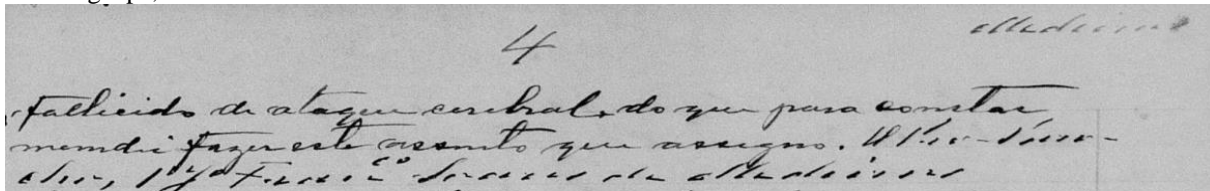 4
Medeiros
fallicido de ataque cerebral, do que para constar
mandei fazer este assento que assigno. O
Franc.co Soares de Medeiros